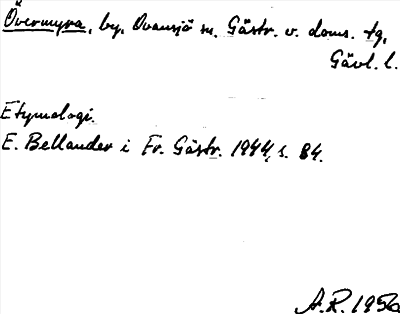 Övermyra, by, Ovansjö sn. Gästr. v. doms. tg,
Gävl. l.
Etymologi.
E. Bellander i Fr. Gästr. 1944, s. 84.
A.R. 1956